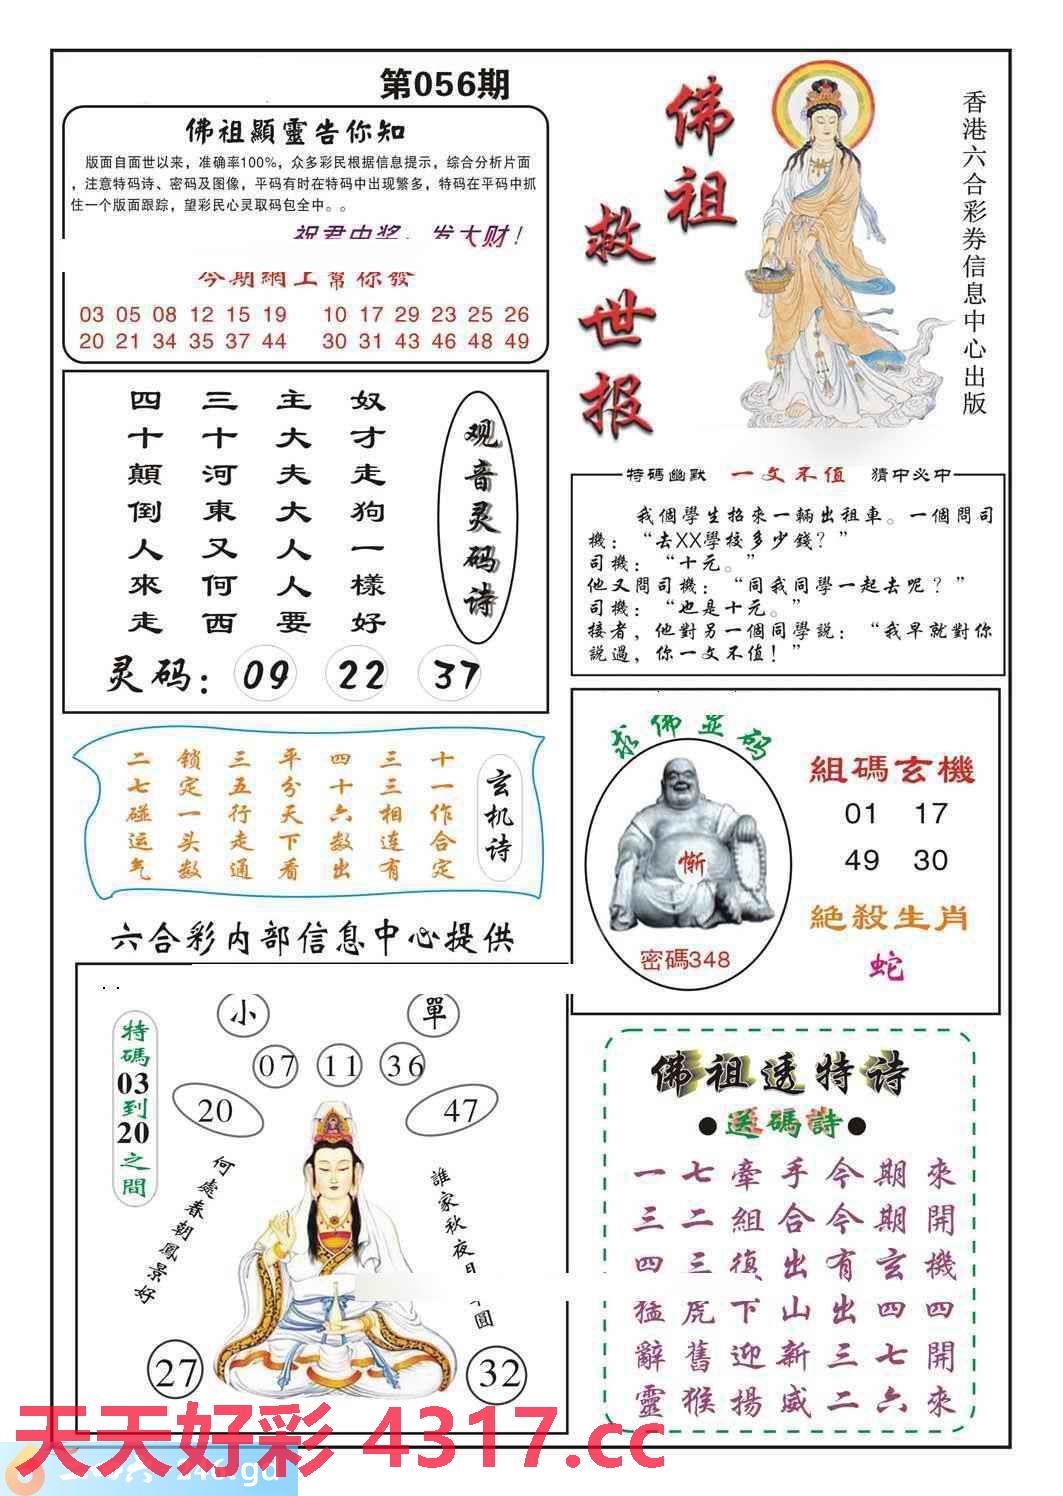 第056期
佛祖顯靈告你知
版面自面世以来，准确率100%，众多彩民根据信息提示，综合分析片面
，注意特码诗、密码及图像，平码有时在特码中出现繁多，特码在平码中抓
住一个版面跟踪，望彩民心灵取码包全中。。
祝君中奖，发大财！
今期網上幫你發
03 05 08 12 15 19 10 17 29 23 25 26
20 21 34 35 37 44 30 31 43 46 48 49
佛祖
救世报
香港六合彩券信息中心出版
观音灵码诗
奴才走狗一樣好
主大夫大人人要
三十河東又何西
四十顛倒人來走
灵码：09 22 37
特碼幽默 一文不值 猜中必中
我個學生招來一輛出租車。一個問司
機：“去XX學校多少錢？”
司機：“十元。”
他又問司機：“同我同學一起去呢？”
司機：“也是十元。”
接者，他對另一個同學説：“我早就對你
説過，你一文不值！”
玄机诗
十一作合定
三三相连有
四十六数出
平分天下看
三五行走通
锁定一头数
二七碰运气
求佛显码
惭
密碼348
組碼玄機
01 17
49 30
絶殺生肖
蛇
六合彩内部信息中心提供
特碼03到20之間
小 單
07 11 36
20 47
何處春朝鳳景好
誰家秋夜月圓
27 32
佛祖透特诗
●送碼詩●
一七牽手今期來
三二組合今期開
四三復出有玄機
猛虎下山出四四
辭舊迎新三七開
靈猴揚威二六來
天天好彩 4317.cc
246.gd